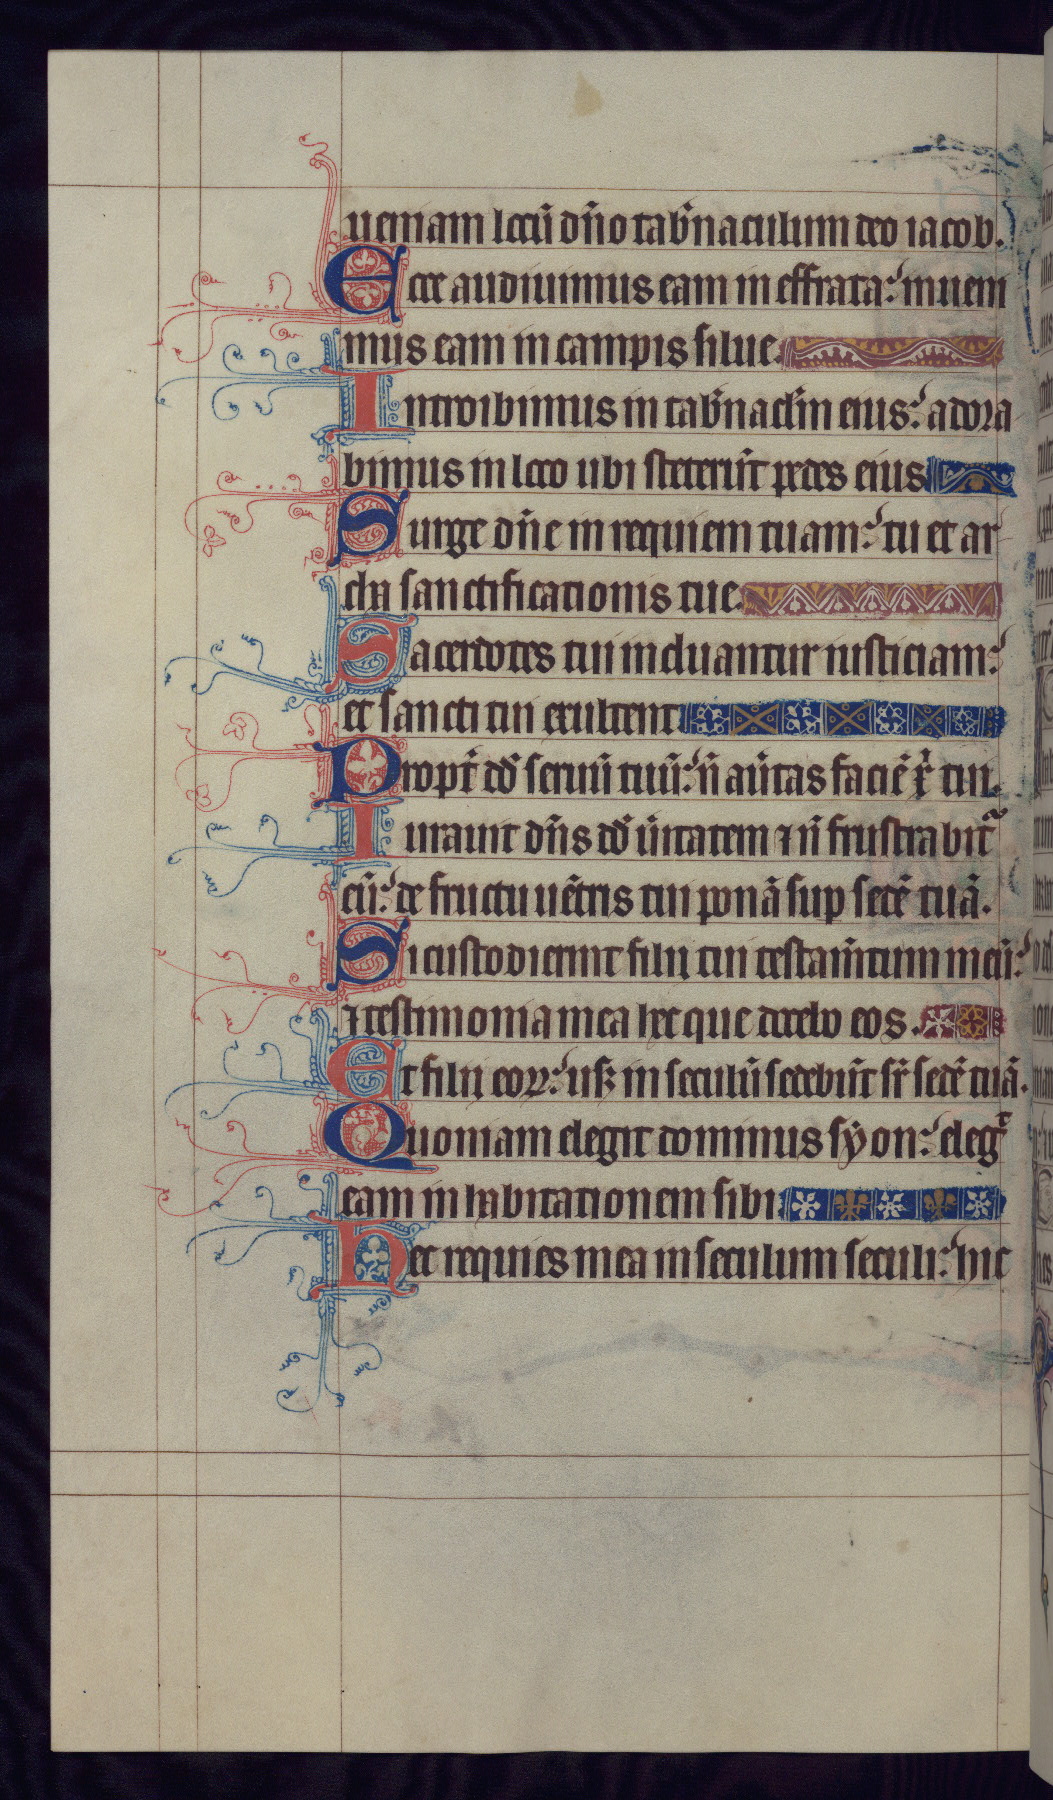 ueniam locū dn̄o tab̄naculum deo iacob.
Ecce audiuimus eam in effrata: inueni
mus eam in campis silue.
Introibimus in tab̄naclm̄ eius: adora
bimus in loco ubi steterūt pedes eius
Surge dn̄e in requiem tuam: tu et ar
cha sanctificationis tue.
Sacerdotes tui induantur iusticiam:
et sancti tui exultent
Propt̄ dd̄ seruū tuū: n̄ aūtas faciē xp̄i tui.
Iurauit dn̄s dd̄ ūitatem ⁊ n̄ frustrabit̄
eū: de fructu uētris tui ponā sup sedē tuā.
Si custodierint filii tui testam̄tum meū:
⁊ testimonia mea hec que docebo eos.
Et filii eoꝝ: usꝫ in seculū sedebūt sr̄ sedē tuā.
Quoniam elegit dominus syon: elegᵗ
eam in habitationem sibi
Hec requies mea in seculum seculi: hic